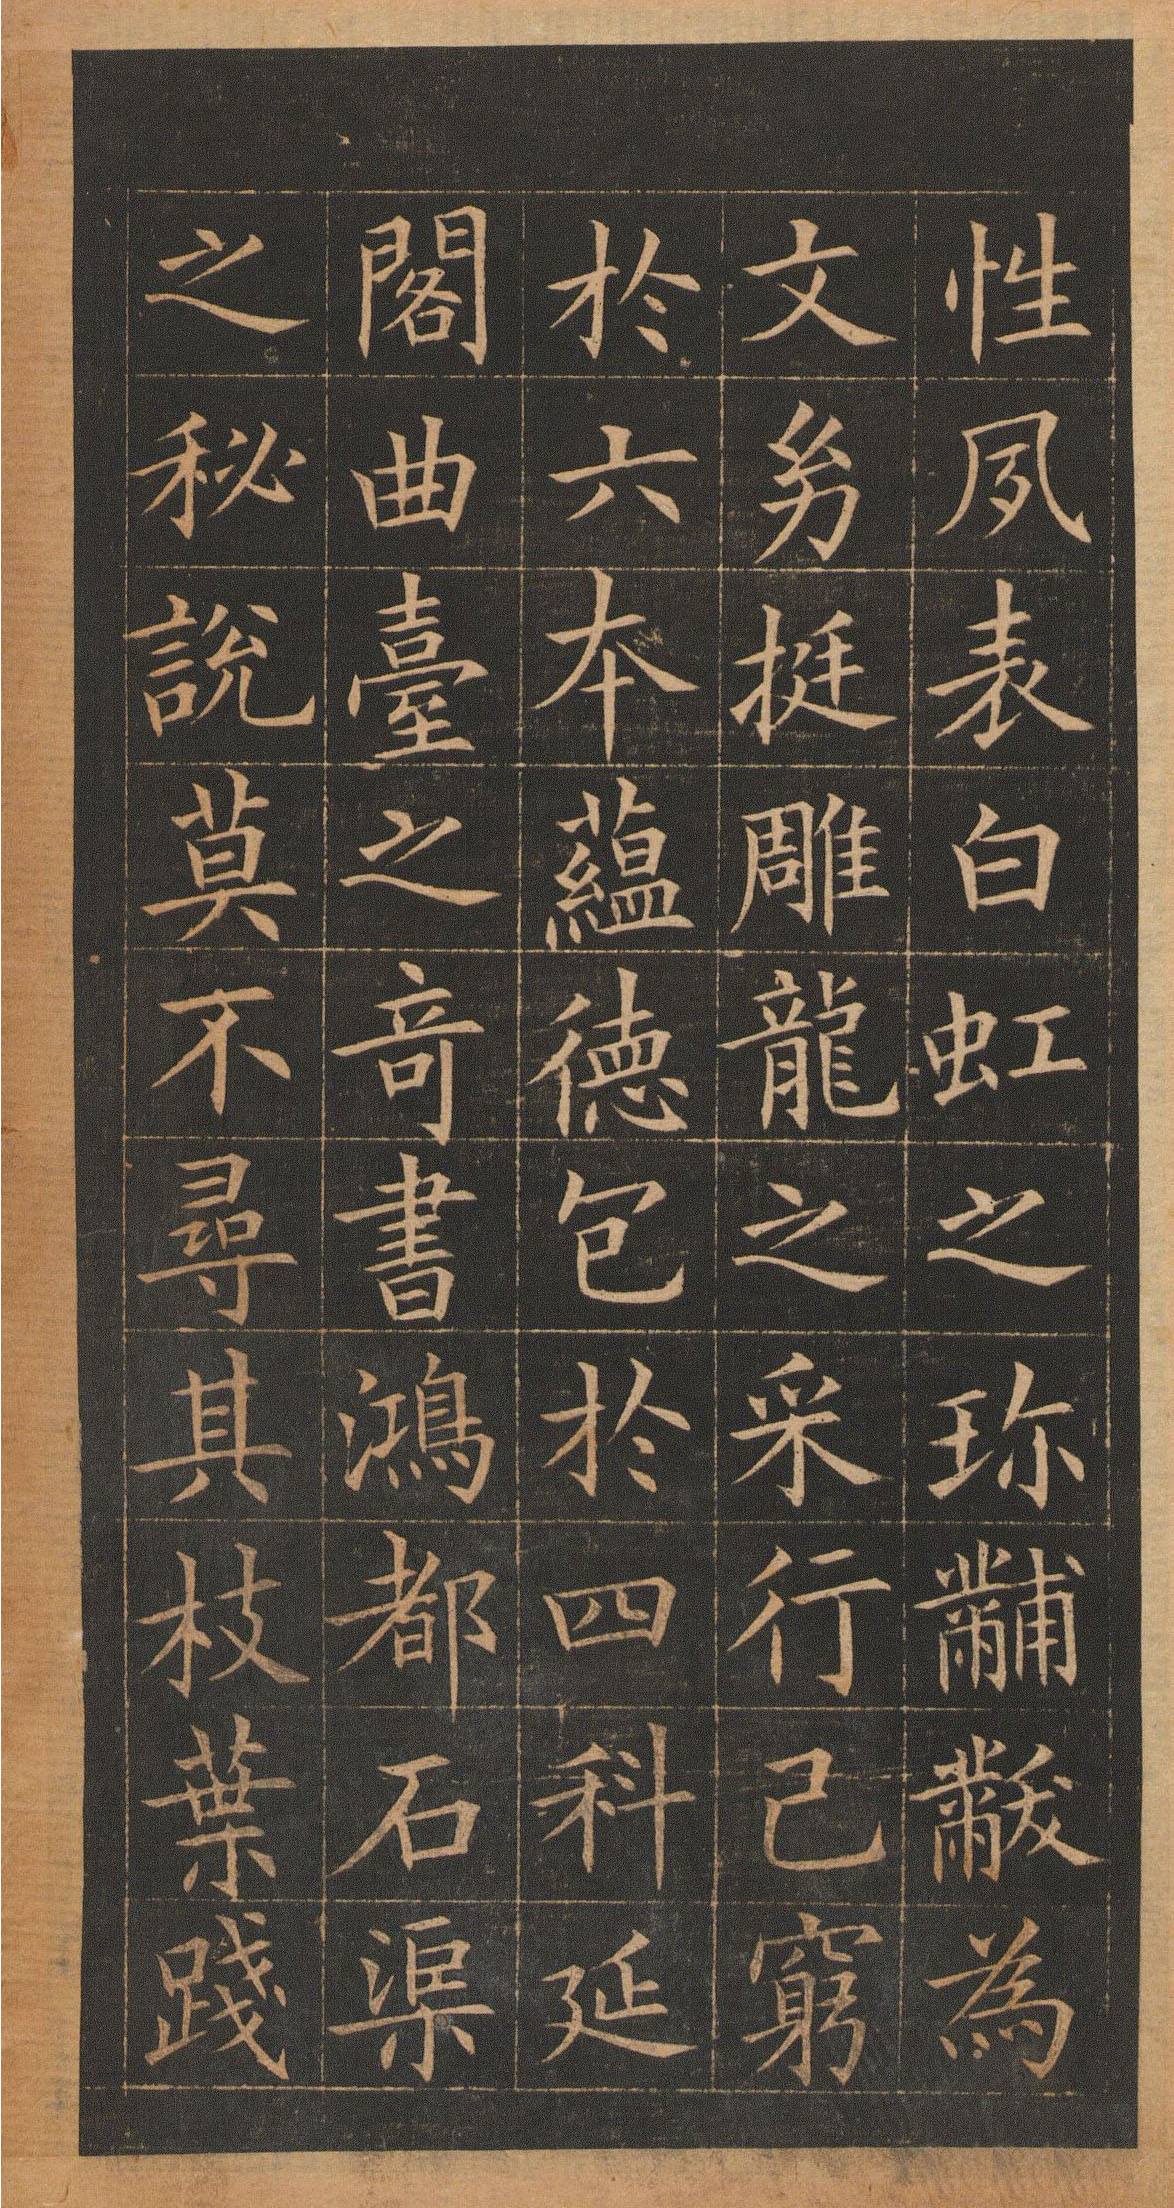 性夙表白虹之珎黼黻為
文㓜挺雕龍之采行己窮
於六本蘊徳包於四科延
閣曲臺之竒書鴻都石渠
之秘說莫不尋其枝葉踐